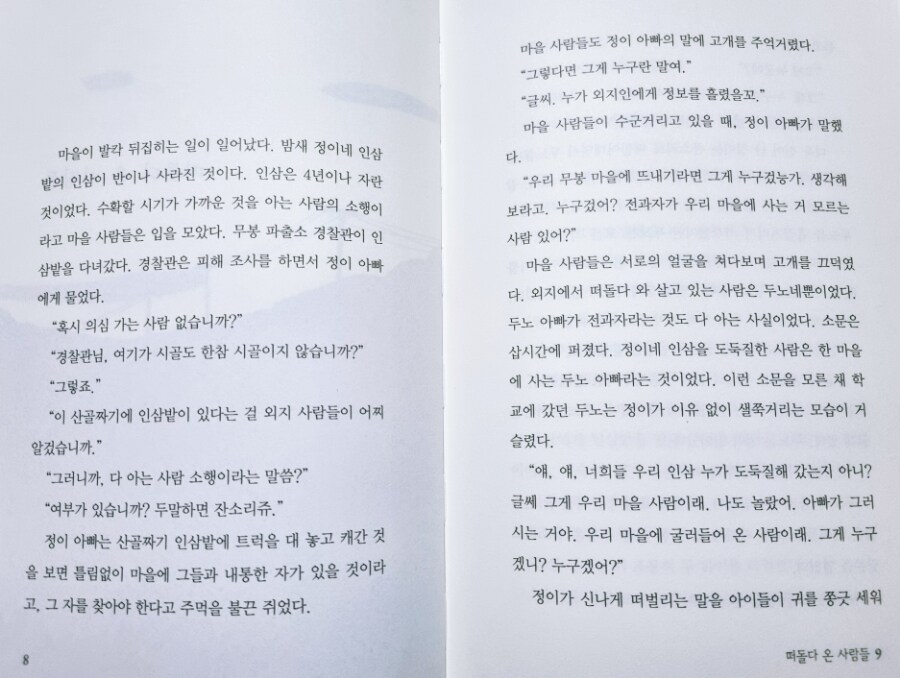 마을이 발칵 뒤집히는 일이 일어났다. 밤새 정이네 인삼
밭의 인삼이 반이나 사라진 것이다. 인삼은 4년이나 자란
것이었다. 수확할 시기가 가까운 것을 아는 사람의 소행이
라고 마을 사람들은 입을 모았다. 무봉 파출소 경찰관이 인
삼밭을 다녀갔다. 경찰관은 피해 조사를 하면서 정이 아빠
에게 물었다.
“혹시 의심 가는 사람 없습니까?”
“경찰관님, 여기가 시골도 한참 시골이지 않습니까?”
“그렇죠.”
“이 산골짜기에 인삼밭이 있다는 걸 외지 사람들이 어찌
알겠습니까.”
“그러니까, 다 아는 사람 소행이라는 말씀?”
“여부가 있습니까? 두말하면 잔소리쥬.”
정이 아빠는 산골짜기 인삼밭에 트럭을 대 놓고 캐간 것
을 보면 틀림없이 마을에 그들과 내통한 자가 있을 것이라
고, 그 자를 찾아야 한다고 주먹을 불끈 쥐었다.
8
마을 사람들도 정이 아빠의 말에 고개를 주억거렸다.
“그렇다면 그게 누구란 말여.”
“글씨. 누가 외지인에게 정보를 흘렸을꼬.”
마을 사람들이 수군거리고 있을 때, 정이 아빠가 말했
다.
“우리 무봉 마을에 뜨내기라면 그게 누구겄능가. 생각해
보라고. 누구겄어? 전과자가 우리 마을에 사는 거 모르는
사람 있어?”
마을 사람들은 서로의 얼굴을 쳐다보며 고개를 끄덕였
다. 외지에서 떠돌다 와 살고 있는 사람은 두노네뿐이었다.
두노 아빠가 전과자라는 것도 다 아는 사실이었다. 소문은
삽시간에 퍼졌다. 정이네 인삼을 도둑질한 사람은 한 마을
에 사는 두노 아빠라는 것이었다. 이런 소문을 모른 채 학
교에 갔던 두노는 정이가 이유 없이 샐쭉거리는 모습이 거
슬렸다.
“얘, 얘, 너희들 우리 인삼 누가 도둑질해 갔는지 아니?
글쎄 그게 우리 마을 사람이래. 나도 놀랐어. 아빠가 그러
시는 거야. 우리 마을에 굴러들어 온 사람이래. 그게 누구
겠니? 누구겠어?”
정이가 신나게 떠벌리는 말을 아이들이 귀를 쫑긋 세워
떠돌다 온 사람들 9